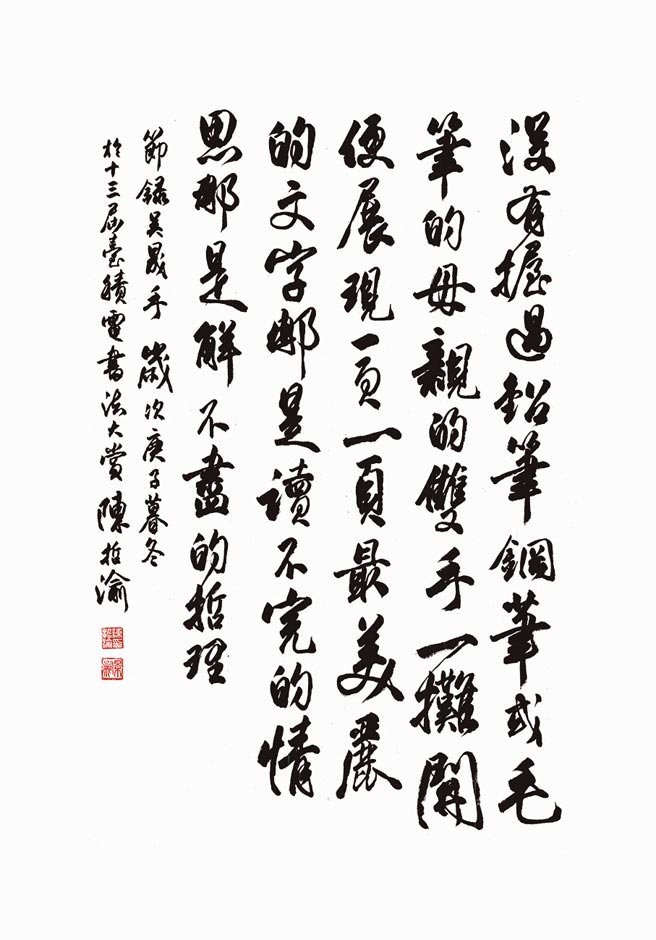 沒有握過鉛筆鋼筆或毛
筆的母親的雙手一攤開
便展現一頁一頁最美麗
的文字那是讀不完的情
思那是解不盡的哲理
節錄吳晟手 歲次庚子暮冬
於十三屆臺積電書法大賞 陳哲渝